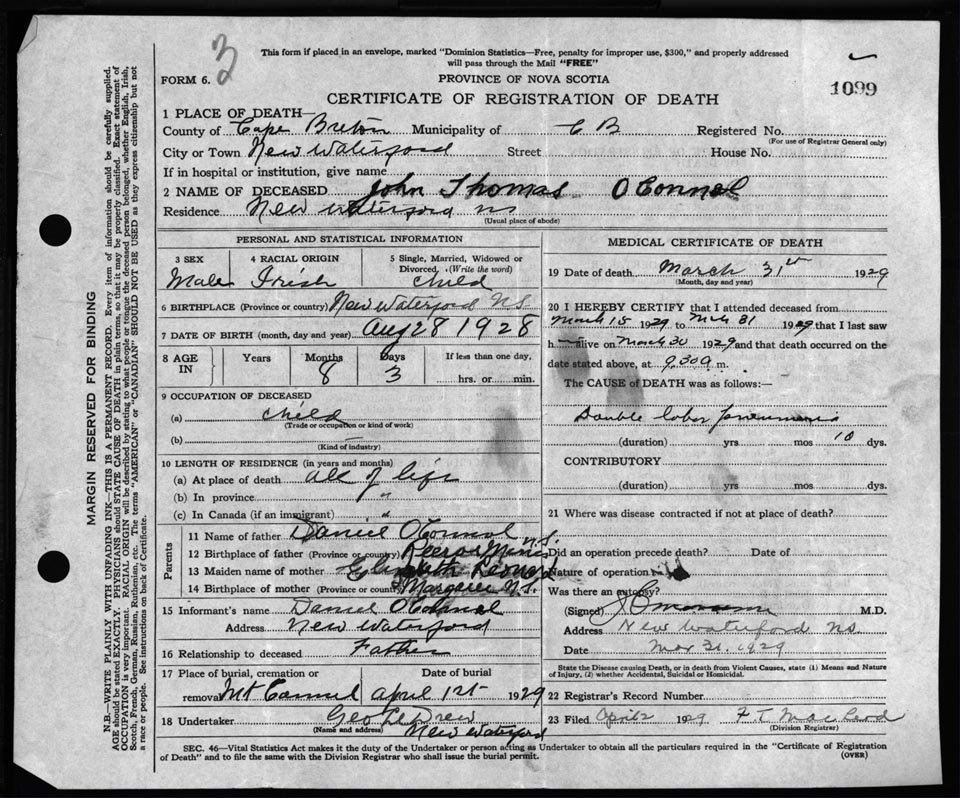 3
This form if placed in an envelope, marked "Dominion Statistics—Free, penalty for improper use, $300," and properly addressed
will pass through the Mail "FREE"
FORM 6.
PROVINCE OF NOVA SCOTIA
1099
CERTIFICATE OF REGISTRATION OF DEATH
1 PLACE OF DEATH—
County of Cape Breton Municipality of C B Registered No.
(For use of Registrar General only)
City or Town New Waterford Street House No.
If in hospital or institution, give name
2 NAME OF DECEASED John Thomas O'Connel
Residence New Waterford ns
(Usual place of abode)
PERSONAL AND STATISTICAL INFORMATION
3 SEX 4 RACIAL ORIGIN 5 Single, Married, Widowed or
Divorced. (Write the word)
Male Irish Child
6 BIRTHPLACE (Province or country) New Waterford N.S.
7 DATE OF BIRTH (month, day and year) Aug 28 1928
8 AGE IN Years Months Days If less than one day,
8 3 hrs. or min.
9 OCCUPATION OF DECEASED
(a) child
(Trade or occupation or kind of work)
(b)
(Kind of industry)
10 LENGTH OF RESIDENCE (in years and months)
(a) At place of death all of life
(b) In province "
(c) In Canada (if an immigrant) "
Parents
11 Name of father Daniel O'Connel
12 Birthplace of father (Province or country) Reserve Mines N.S.
13 Maiden name of mother Elizabeth
14 Birthplace of mother (Province or country) Margaree N.S.
15 Informant's name Daniel O'Connel
Address New Waterford
16 Relationship to deceased Father
17 Place of burial, cremation or Date of burial
removal Mt Carmel April 1st 1929
18 Undertaker Geo
(Name and address) New Waterford
MEDICAL CERTIFICATE OF DEATH
19 Date of death March 31st 1929
(Month, day and year)
20 I HEREBY CERTIFY that I attended deceased from
March 15 1929 to Mch 31 1929 that I last saw
h alive on March 30 1929 and that death occurred on the
date stated above, at 9.30 a m.
The CAUSE of DEATH was as follows:—
Double lobar pneumonia
(duration) yrs mos 10 dys.
CONTRIBUTORY
(duration) yrs mos dys.
21 Where was disease contracted if not at place of death?
Did an operation precede death? Date of
Nature of operation
Was there an autopsy?
(Signed) M.D.
Address New Waterford ns.
Date Mar 31. 1929
State the Disease causing Death, or in death from Violent Causes, state (1) Means and Nature
of Injury, (2) whether Accidental, Suicidal or Homicidal.
22 Registrar's Record Number
23 Filed April 2 1929 F T MacLeod
(Division Registrar)
SEC. 46—Vital Statistics Act makes it the duty of the Undertaker or person acting as Undertaker to obtain all the particulars required in the "Certificate of Registration
of Death" and to file the same with the Division Registrar who shall issue the burial permit.
(OVER)
MARGIN RESERVED FOR BINDING
N.B.—WRITE PLAINLY WITH UNFADING INK—THIS IS A PERMANENT RECORD. Every item of information should be carefully supplied.
AGE should be stated EXACTLY. PHYSICIANS should STATE CAUSE OF DEATH in plain terms, so that it may be properly classified. Exact statement of
OCCUPATION is very important. RACIAL ORIGIN will be described by stating to what people or tongue the deceased person belonged, whether English, Irish,
Scotch, French, German, Russian, Ruthenian, etc. The terms "AMERICAN" or "CANADIAN" SHOULD NOT BE USED as they express citizenship but not
a race or people. See instructions on back of Certificate.